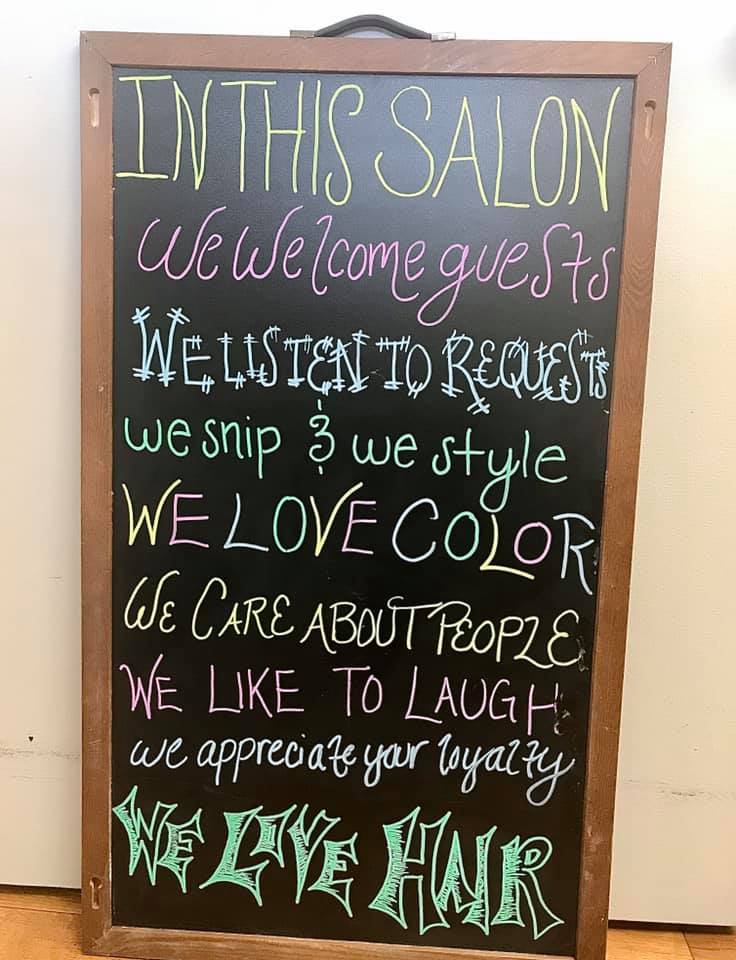 IN THIS SALON
We Welcome guests
WE LISTEN TO REQUESTS
we snip & we style
WE LOVE COLOR
WE CARE ABOUT PEOPLE
WE LIKE TO LAUGH
we appreciate your loyalty
WE LOVE HAIR